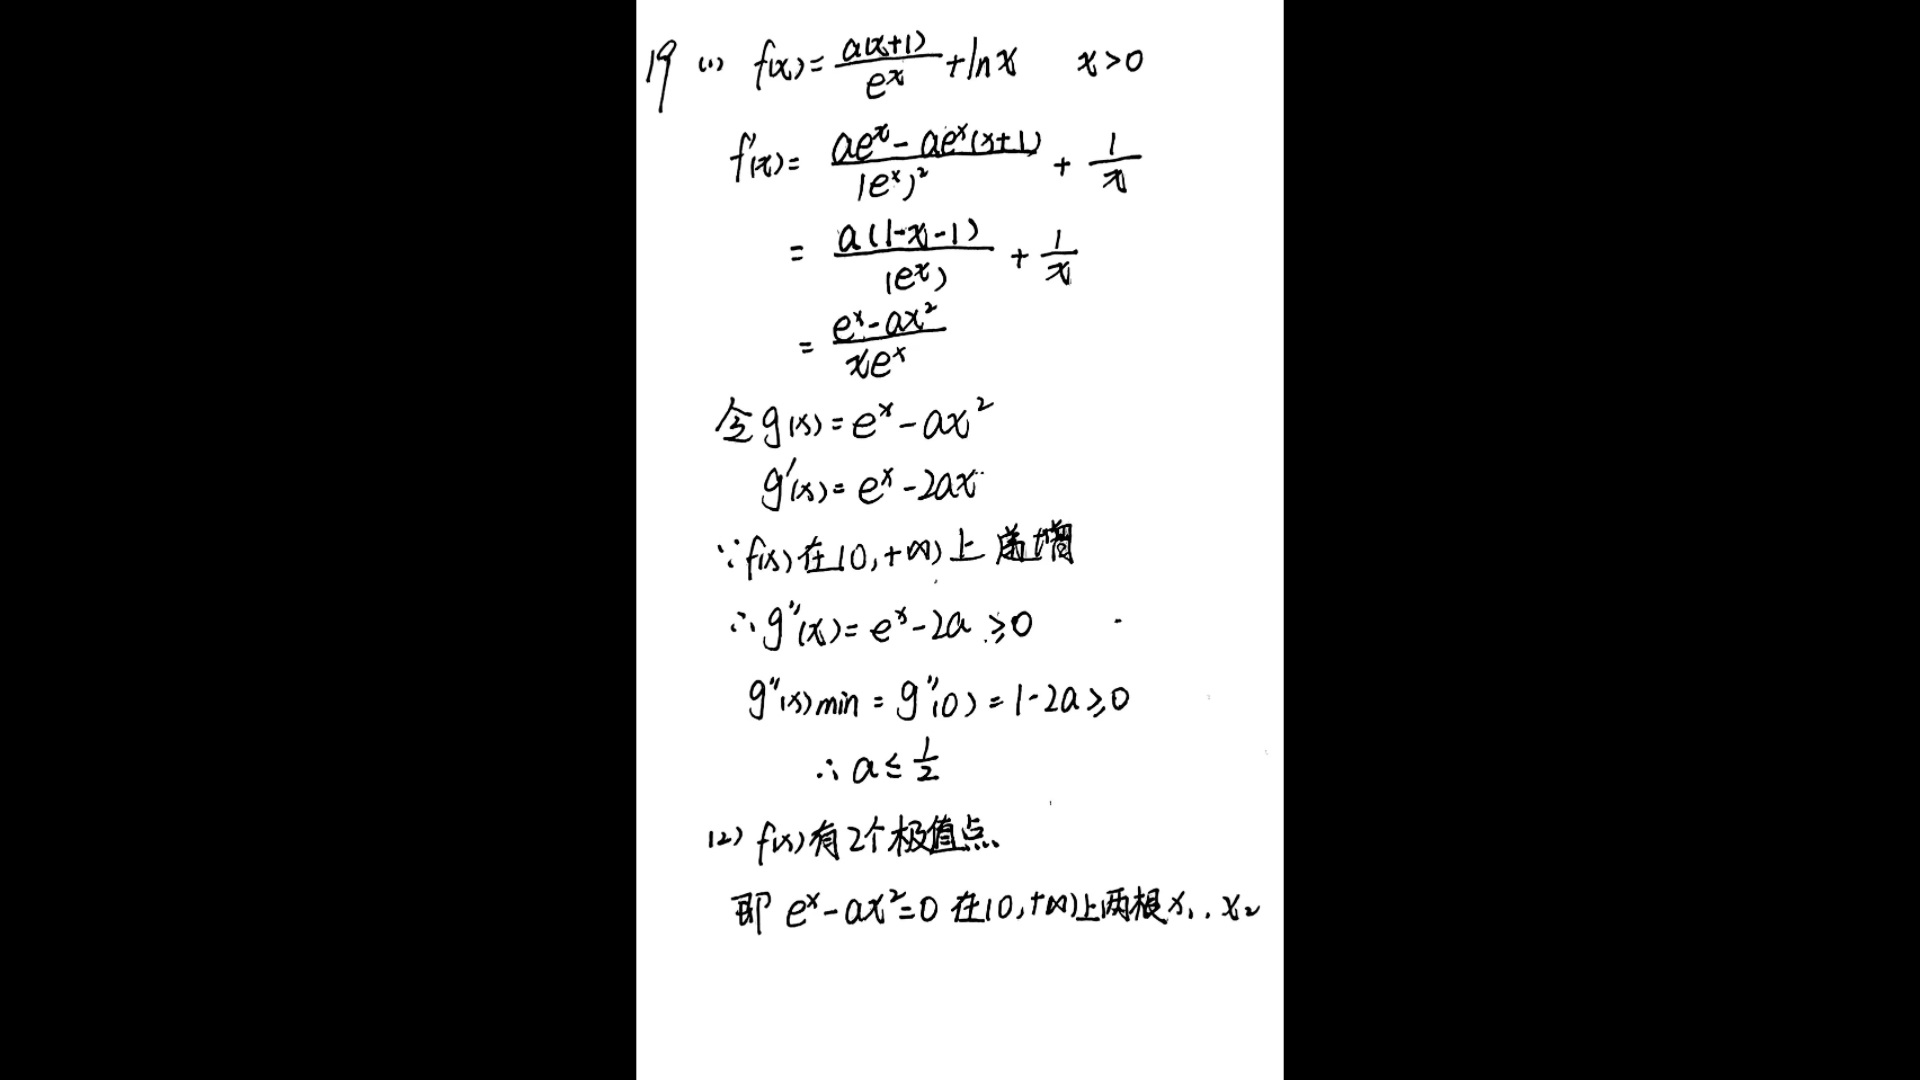 19 (1) f(x)=a(x+1)/e^x+lnx x>0
f'(x)=(ae^x-ae^x(x+1))/(e^x)²+1/x
=a(1-x-1)/(e^x)+1/x
=(e^x-ax²)/(xe^x)
令g(x)=e^x-ax²
g'(x)=e^x-2ax
∵f(x)在(0,+∞)上递增
∴g''(x)=e^x-2a≥0
g''(x)min=g''(0)=1-2a≥0
∴a≤1/2
(2) f(x)有2个极值点.
即e^x-ax²=0在(0,+∞)上两根x₁,x₂